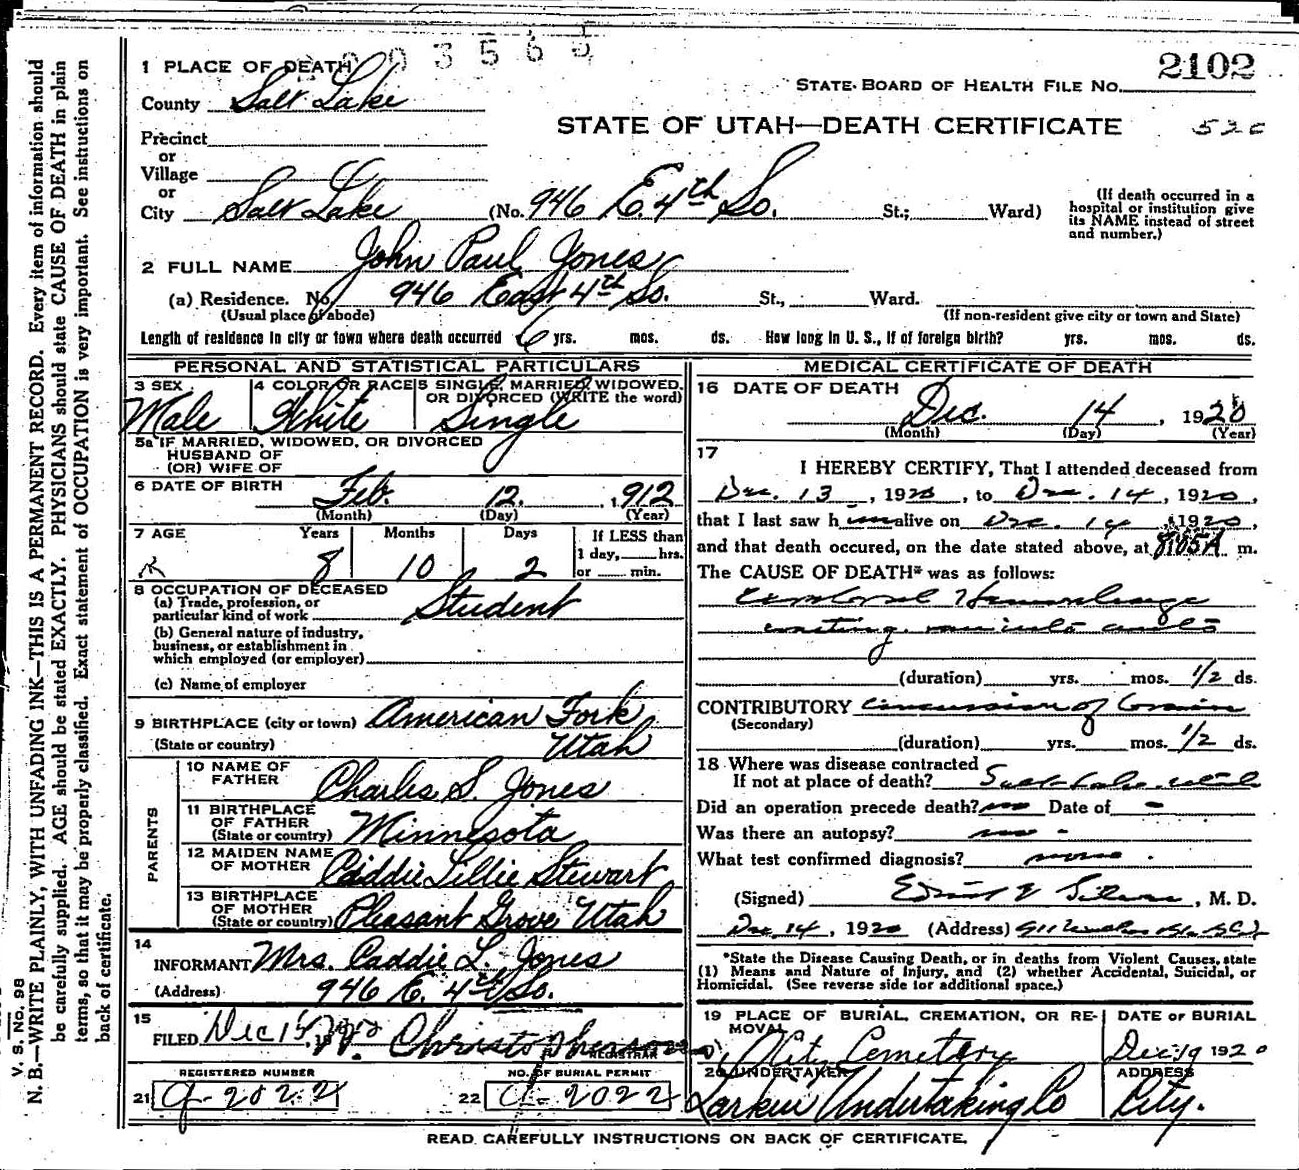 003565
2102
1 PLACE OF DEATH
STATE BOARD OF HEALTH FILE NO.
County Salt Lake
STATE OF UTAH—DEATH CERTIFICATE
52c
Precinct
or
Village
or
City Salt Lake (No. 946 E. 4th So. St.; Ward)
(If death occurred in a hospital or institution give its NAME instead of street and number.)
2 FULL NAME John Paul Jones
(a) Residence. No. 946 East 4th So. St., Ward.
(Usual place of abode) (If non-resident give city or town and State)
Length of residence in city or town where death occurred 6 yrs. mos. ds. How long in U. S., if of foreign birth? yrs. mos. ds.
PERSONAL AND STATISTICAL PARTICULARS
3 SEX Male
4 COLOR OR RACE White
5 SINGLE, MARRIED, WIDOWED, OR DIVORCED (WRITE the word) Single
5a IF MARRIED, WIDOWED, OR DIVORCED
HUSBAND OF
(OR) WIFE OF
6 DATE OF BIRTH Feb. 12. 1912
(Month) (Day) (Year)
7 AGE Years Months Days If LESS than
8 10 2 1 day, hrs.
or min.
8 OCCUPATION OF DECEASED
(a) Trade, profession, or
particular kind of work Student
(b) General nature of industry,
business, or establishment in
which employed (or employer)
(c) Name of employer
9 BIRTHPLACE (city or town) American Fork
(State or country) Utah
PARENTS
10 NAME OF FATHER Charles S. Jones
11 BIRTHPLACE OF FATHER (State or country) Minnesota
12 MAIDEN NAME OF MOTHER Caddie Lillie Stewart
13 BIRTHPLACE OF MOTHER (State or country) Pleasant Grove Utah
14
INFORMANT Mrs. Caddie L. Jones
(Address) 946 E. 4th So.
15
FILED Dec 15, 1920 Christopherson
REGISTRAR
REGISTERED NUMBER NO. OF BURIAL PERMIT
21 G-2022 22 G-2022
MEDICAL CERTIFICATE OF DEATH
16 DATE OF DEATH Dec. 14, 1920
(Month) (Day) (Year)
17
I HEREBY CERTIFY, That I attended deceased from
Dec. 13, 1920, to Dec. 14, 1920,
that I last saw him alive on Dec. 14 1920,
and that death occured, on the date stated above, at 8:05A m.
The CAUSE OF DEATH* was as follows:
Hemorrhage
(duration) yrs. mos. 1/2 ds.
CONTRIBUTORY Concussion of Brain
(Secondary)
(duration) yrs. mos. 1/2 ds.
18 Where was disease contracted
If not at place of death? Salt Lake Utah
Did an operation precede death? no Date of -
Was there an autopsy? no -
What test confirmed diagnosis? none.
(Signed) , M. D.
Dec 14, 1920 (Address) 911
*State the Disease Causing Death, or in deaths from Violent Causes, state
(1) Means and Nature of Injury, and (2) whether Accidental, Suicidal, or
Homicidal. (See reverse side for additional space.)
19 PLACE OF BURIAL, CREMATION, OR REMOVAL City Cemetery
DATE OF BURIAL Dec 19 1920
20 UNDERTAKER Larkin Undertaking Co
ADDRESS City.
READ CAREFULLY INSTRUCTIONS ON BACK OF CERTIFICATE.
V. S. No. 98
N. B.—WRITE PLAINLY, WITH UNFADING INK—THIS IS A PERMANENT RECORD. Every item of information should
be carefully supplied. AGE should be stated EXACTLY. PHYSICIANS should state CAUSE OF DEATH in plain
terms, so that it may be properly classified. Exact statement of OCCUPATION is very important. See instructions on
back of certificate.